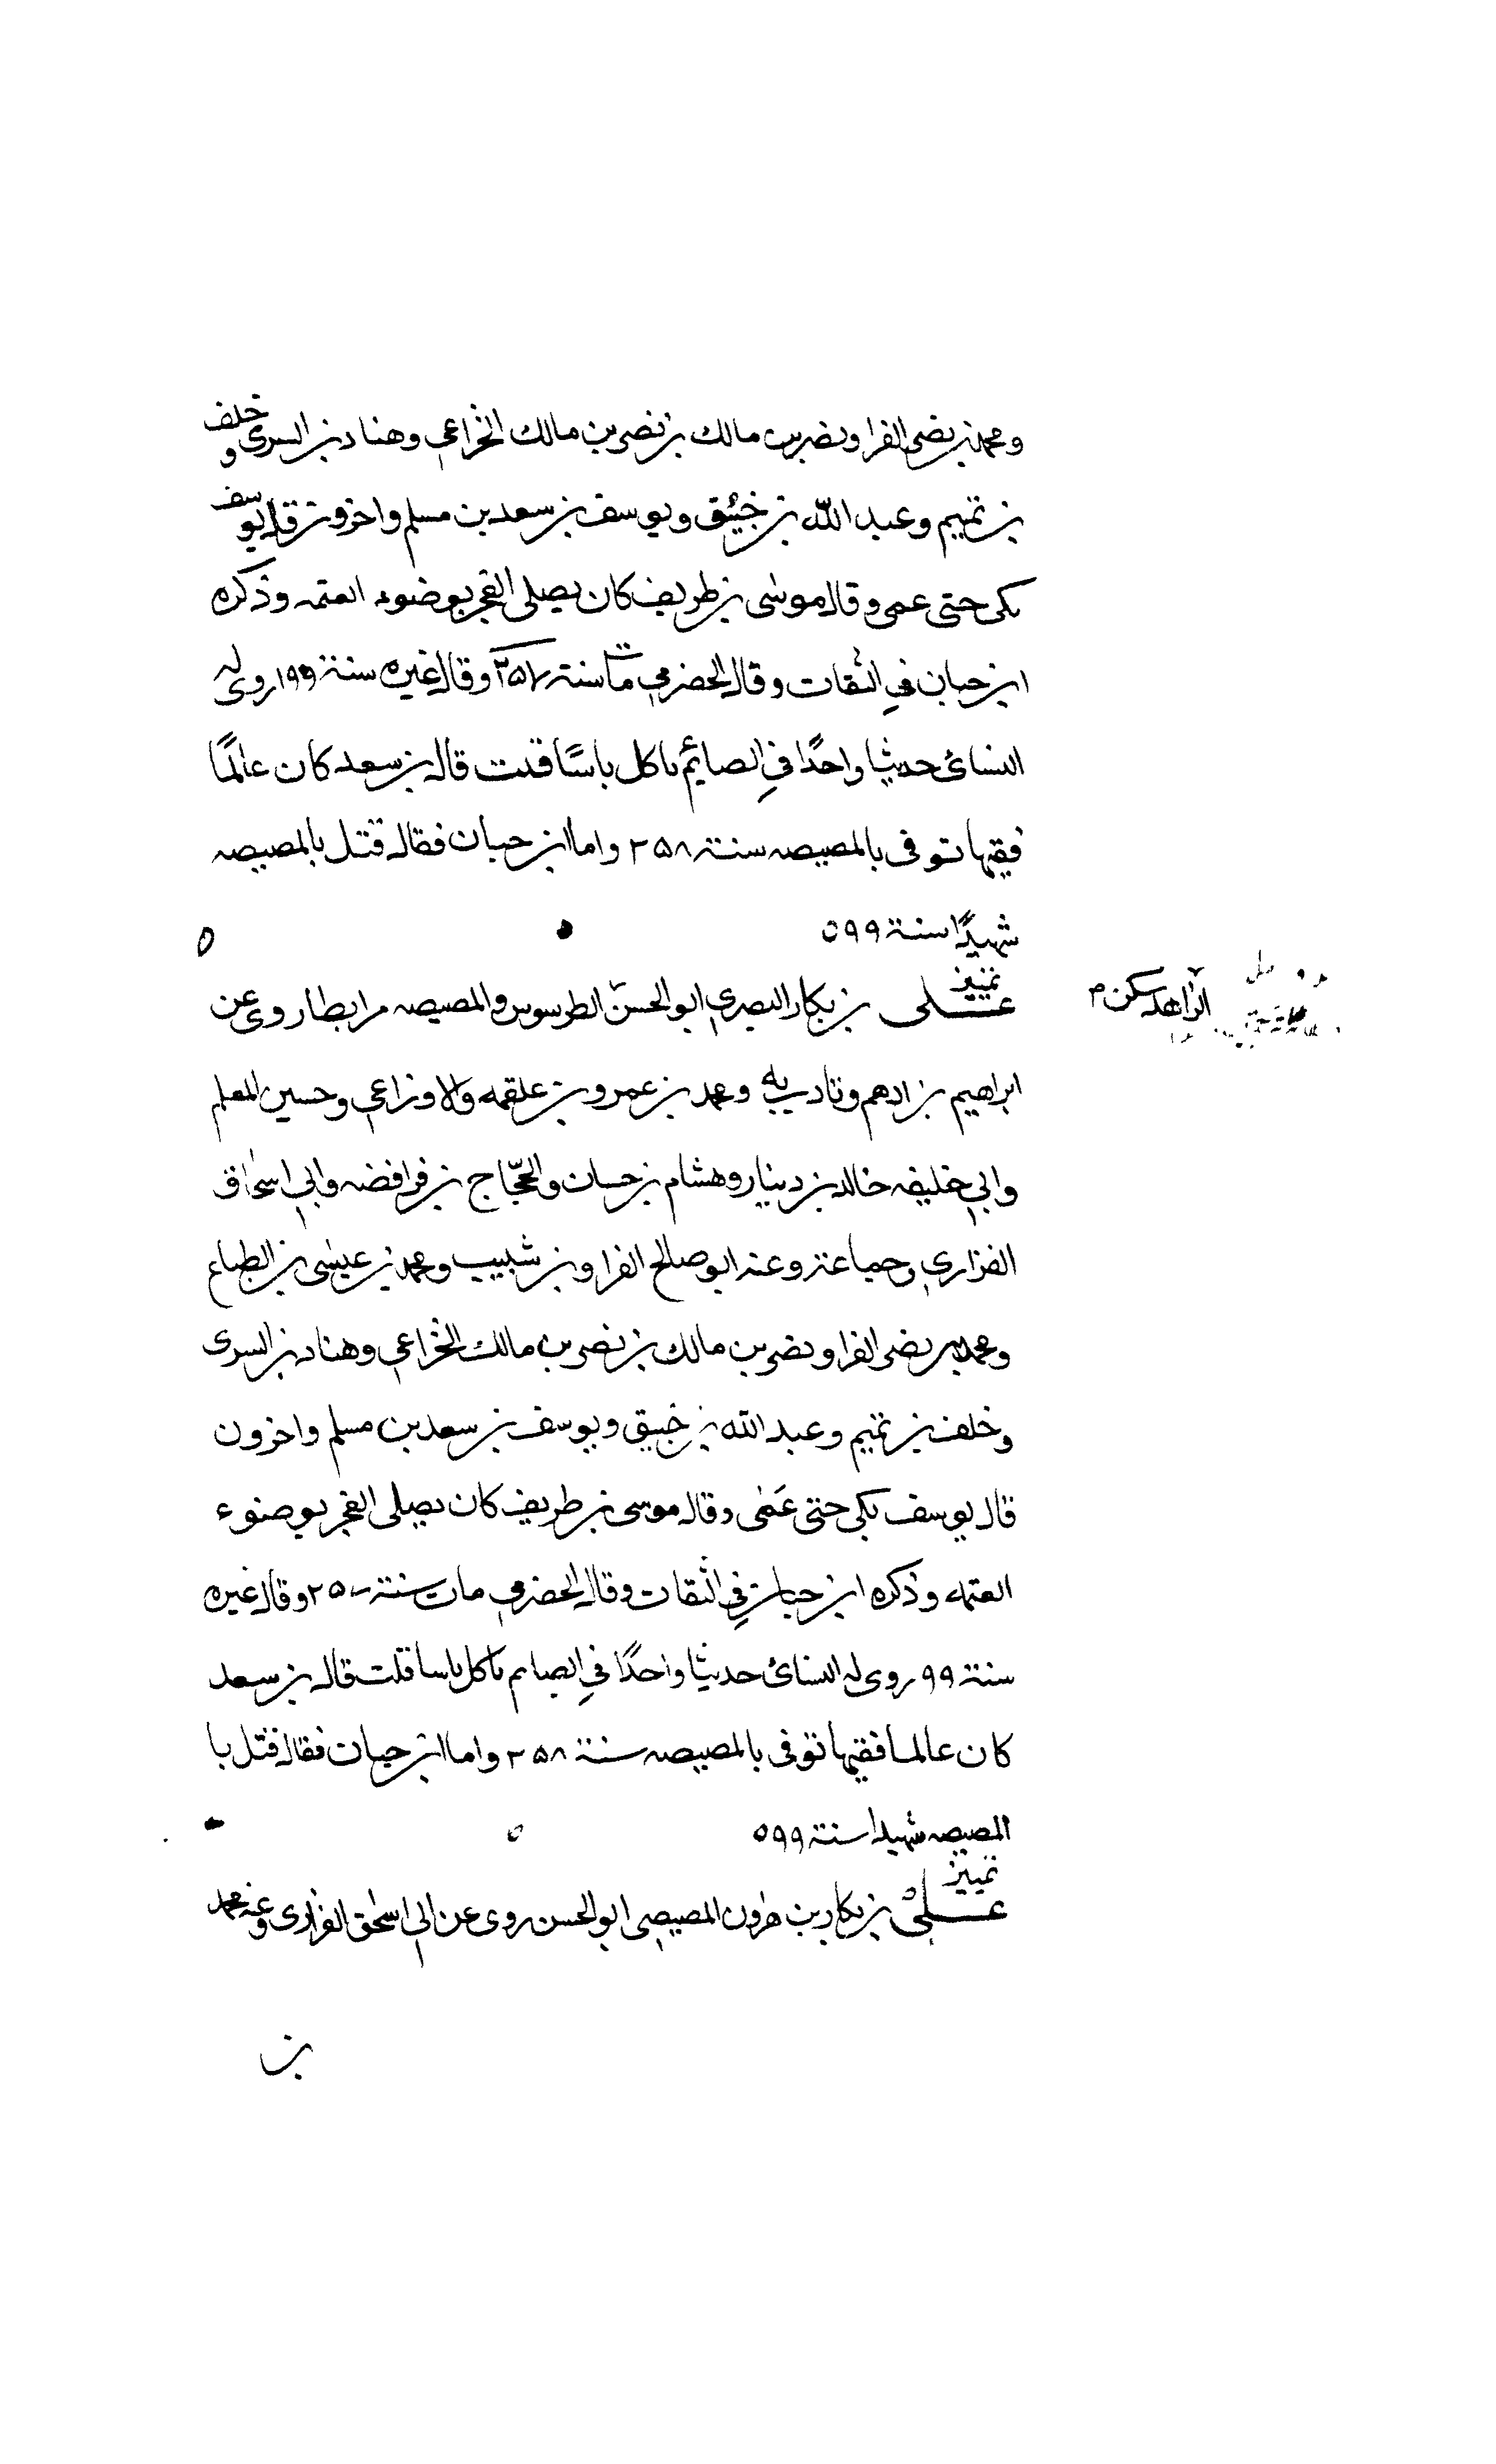 ومحمد بن نضر الفرا ونضر بن مالك بن نصر بن مالك الخزاعي وهناد بن السرى وخلف
بن تميم وعبد الله بن خبيق ويوسف بن سعد بن مسلم واخرون قال يوسف
بكى حتى عمى وقال موسى بن طريف كان يصلى الفجر بوضوء العتمه وذكره
ابن حبان في الثقات وقال الحضرمي مات سنة وقال غيره سنة ١٩٩ روى له
النسائى حديثا واحدًا في الصائم ياكل باسًا قلت قال بن سعد كان عالمًا
فقيها توفى بالمصيصه سنة ٢٥٨ واما ابن حبان فقال قتل بالمصيصه
شهيدًا سنة ٥٩٩
الزاهد سكن م
تمييز
على بن بكار البصري ابو الحسن الطرسوس والمصيصه مرابطا روى عن
ابراهيم بن ادهم وتادب به ومحمد بن عمرو بن علقمه والاوزاعي وحسين المعلم
وابي خليفه خالد بن دينار وهشام بن حسان والحجّاج بن فرافضه وابي اسحاق
الفزاري وجماعة وعنه ابو صالح الفرا وبن شبيب ومحمد بن عيسى بن الطباع
ومحمد بن نضر الفرا ونضر بن مالك بن نصر بن مالك الخزاعي وهناد بن السرى
وخلف بن تميم وعبد الله بن خبيق ويوسف بن سعد بن مسلم واخرون
قال يوسف بكى حتى عَمى وقال موسى بن طريف كان يصلى الفجر بوضوء
العتمه وذكره ابن حبان في الثقات وقال الحضرمي مات سنة وقال غيره
سنة ٩٩ روى له النسائى حديثا واحدًا في الصايم ياكل باسا قلت قال بن سعد
كان عالما فقيها توفى بالمصيصه سنة ٢٥٨ واما ابن حبان فقال قتل با
المصيصه شهيدا سنة ٥٩٩
تمييز
على بن بكار بن هرون المصيصي ابو الحسن روى عن ابي اسحق الفزارى وعنه محمد
بن